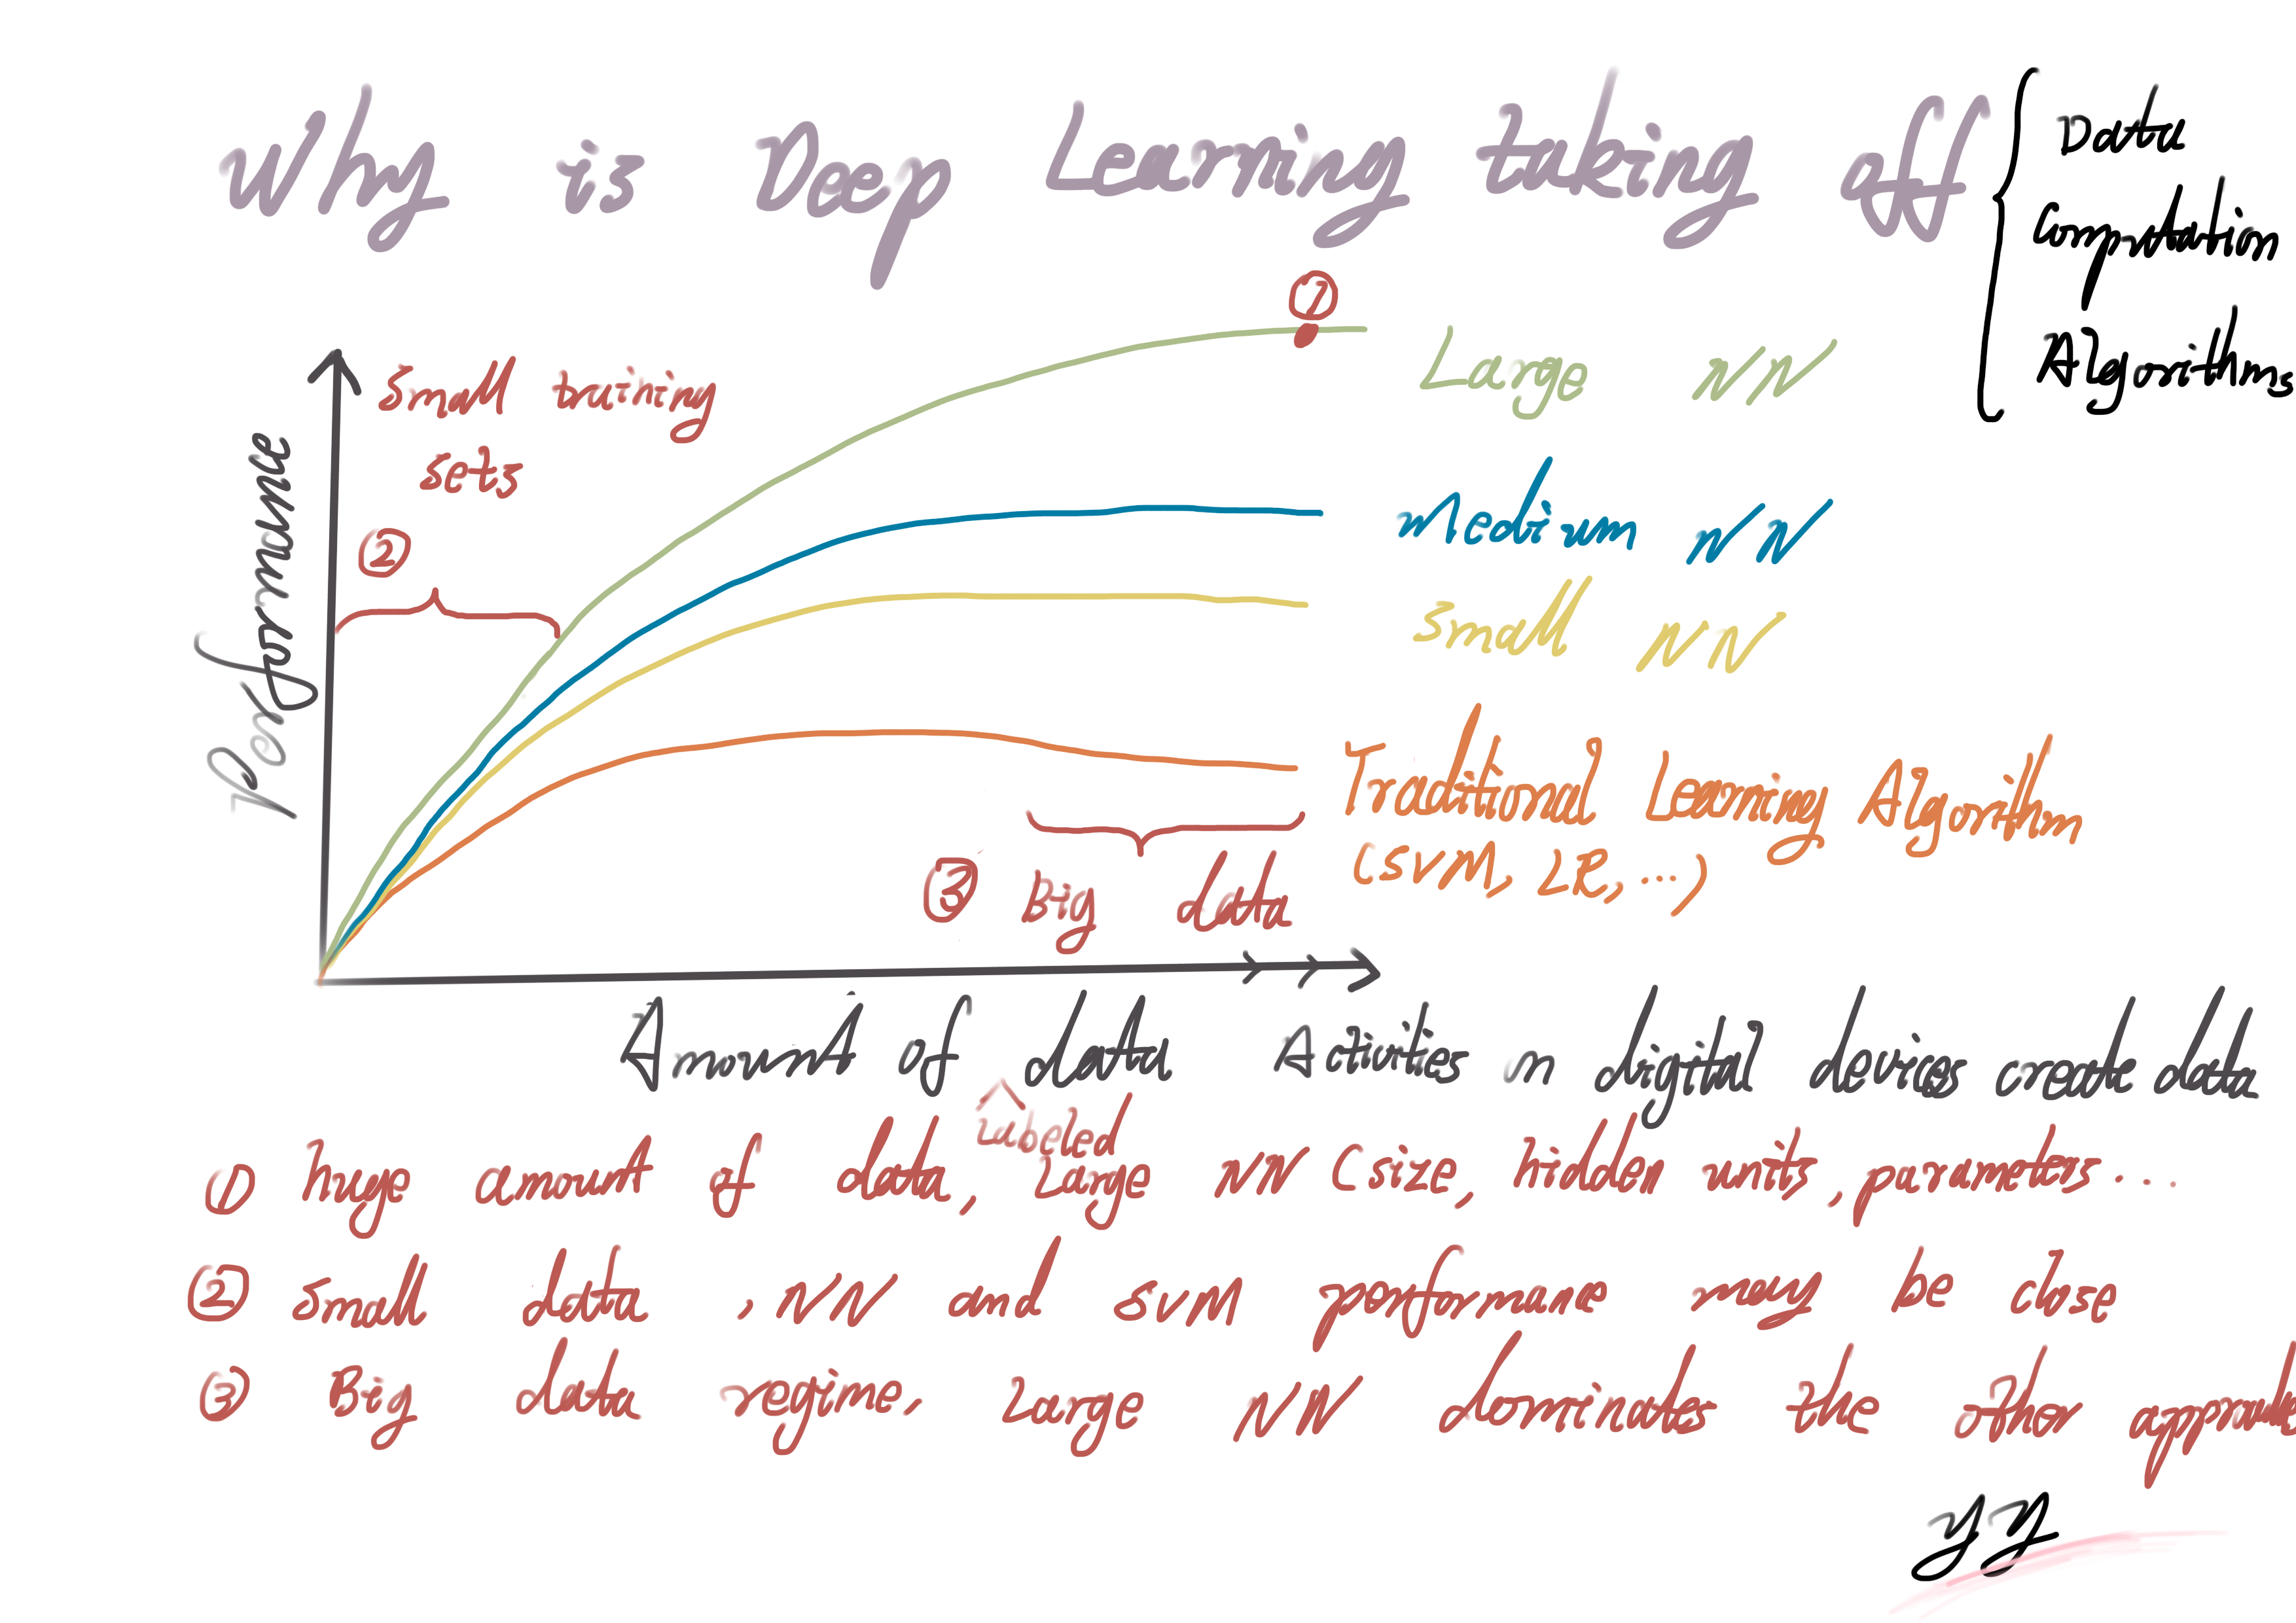 Why is Deep Learning taking off
Data
Computation
Algorithms
①
Large NN
small training
sets
②
Medium NN
small NN
Performance
Traditional Learning Algorithm
(SVM, LR, ...)
③ Big data
Amount of data
Activities on digital devices create data
Labeled
① huge amount of data, Large NN (size, hidden units, parameters...
② small data, NN and SVM performance may be close
③ Big data regime, Large NN dominates the other